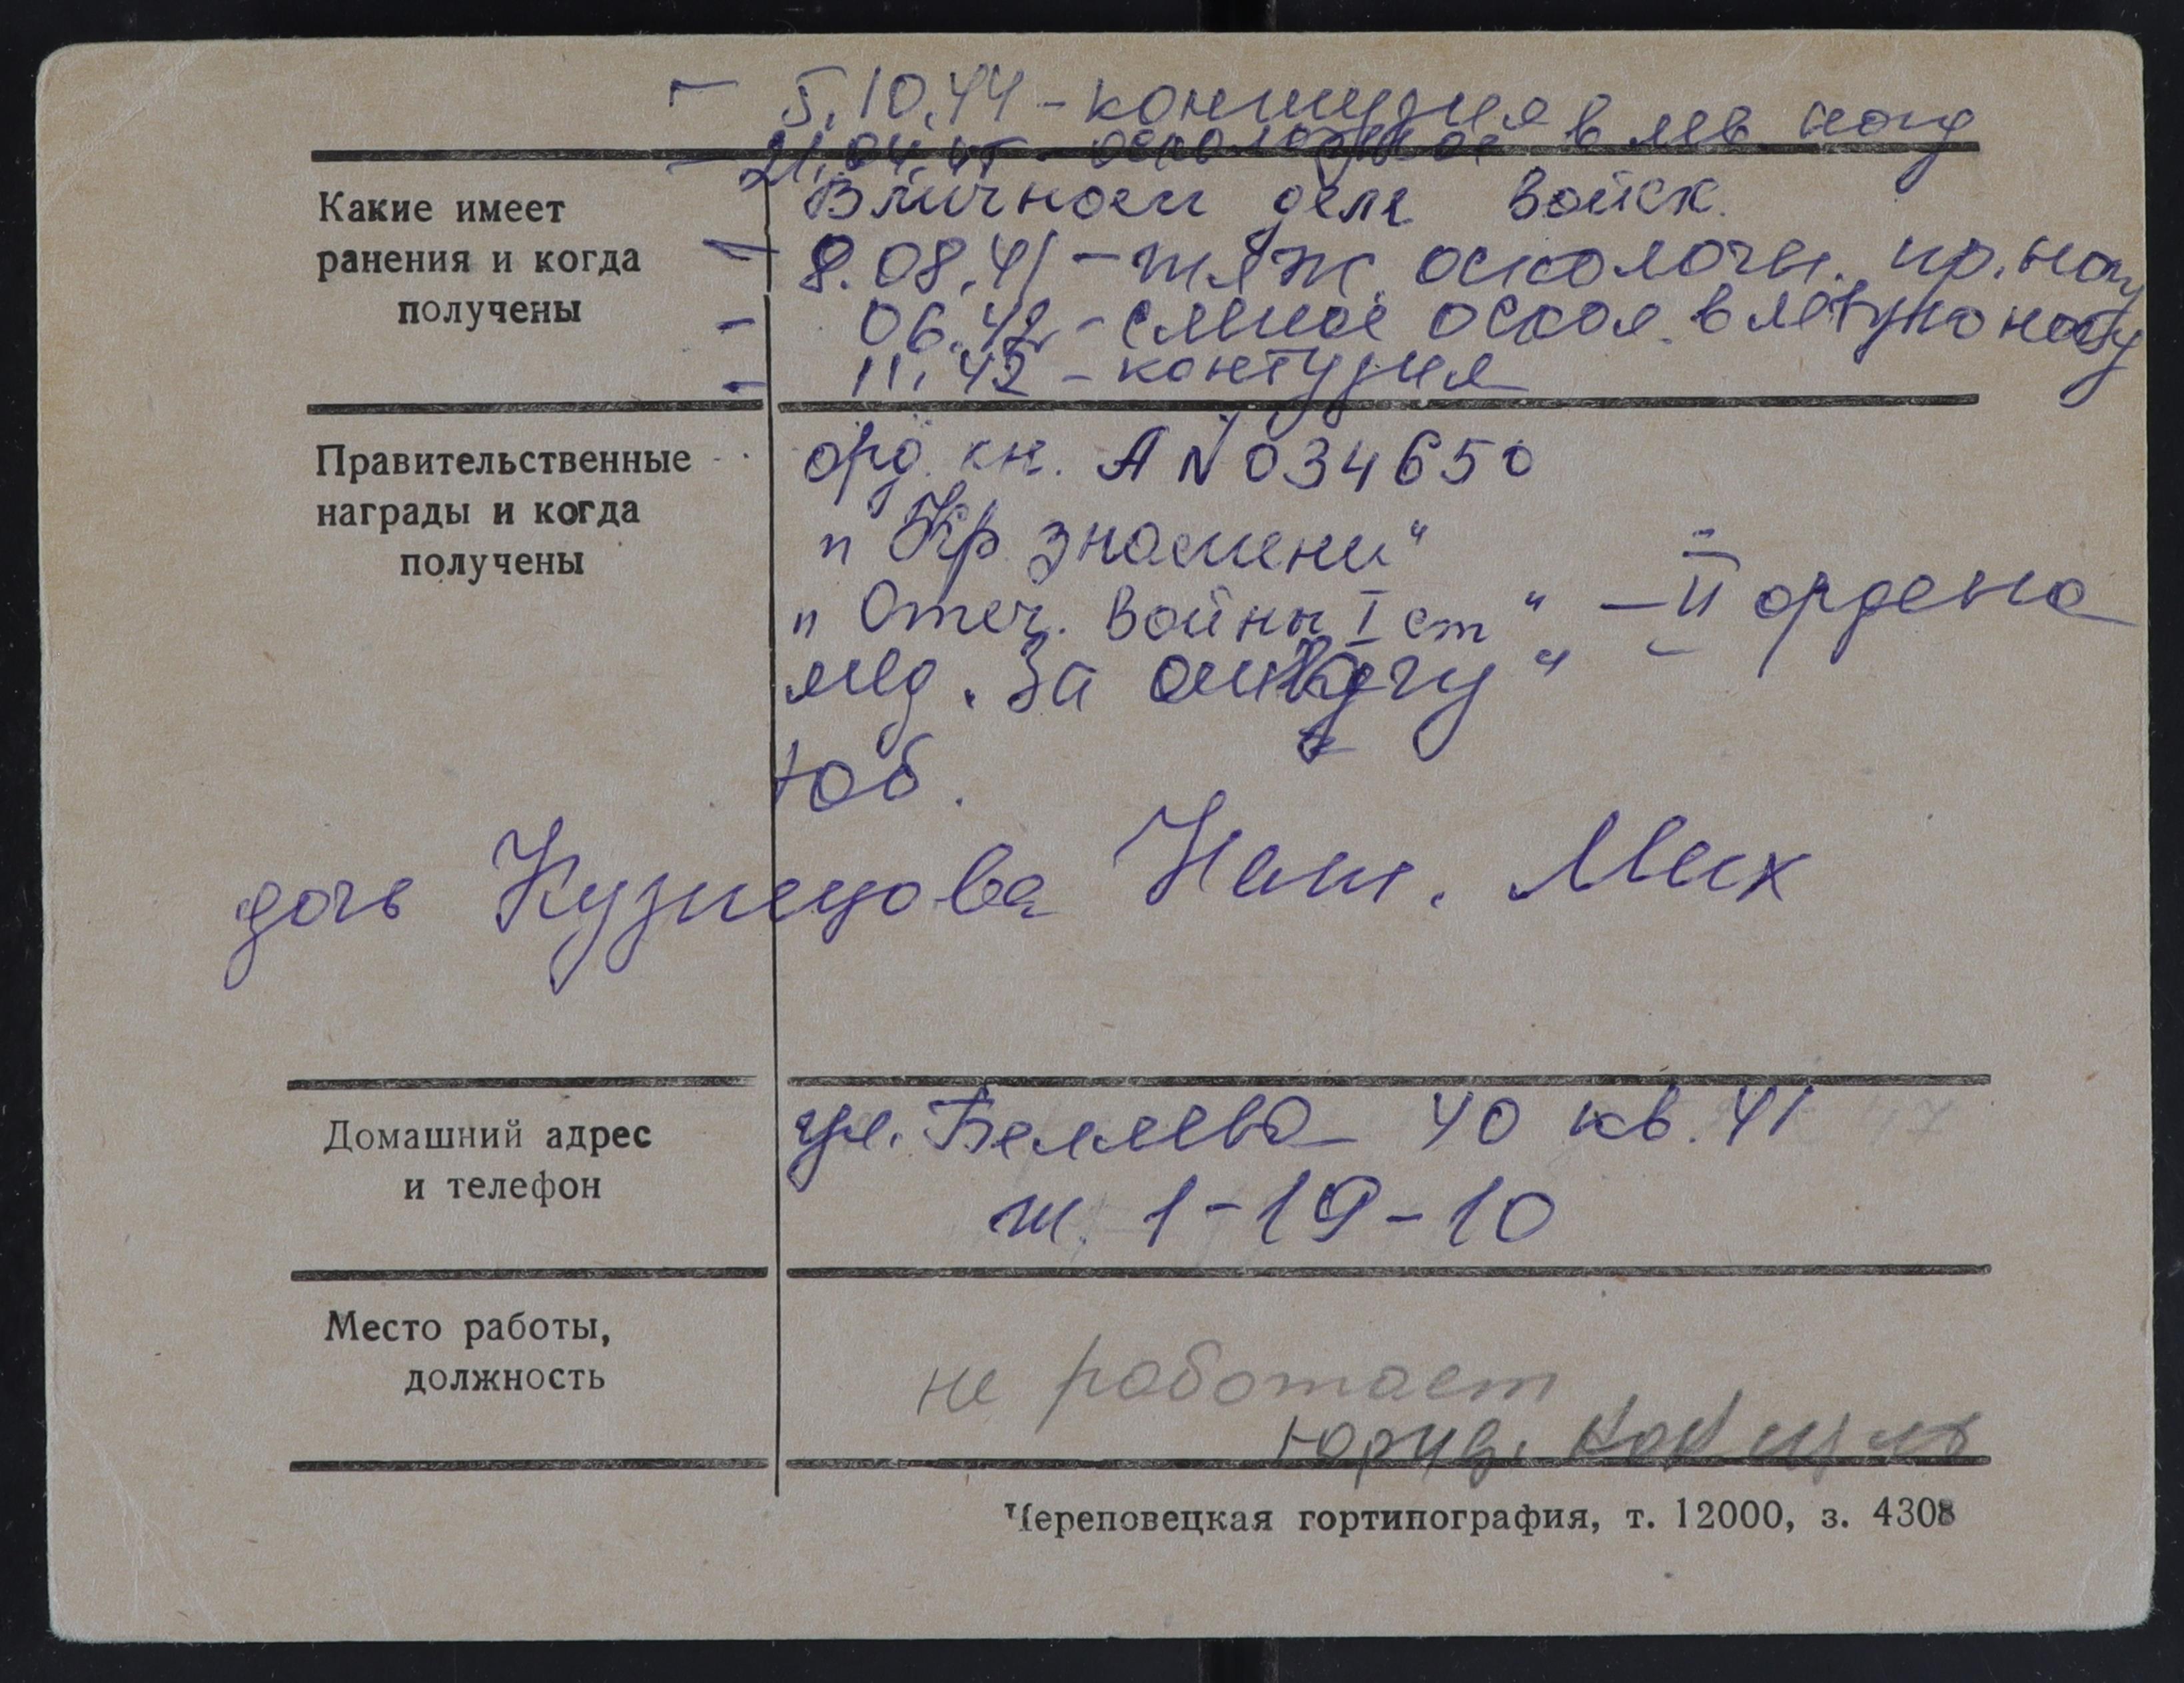 – 5.10.44 – контузия
– 21.04.45 – осколочное в лев. ногу
Какие имеет
ранения и когда
получены
В личном деле войск.
– 8.08.41 – тяж. осколочн. пр. ногу
– 06.42 – слепое оскол. в левую ногу
– 11.42 – контузия
Правительственные
награды и когда
получены
орд. кн. А № 034650
" Кр. знамени"
" Отеч. войны I ст" – II ордена
мед. За отвагу"
юб.
дочь Кузнецова Мих
Домашний адрес
и телефон
ул. Беляева 40 кв. 41
т. 1-19-10
Место работы,
должность
не работает
юрид.
Череповецкая гортипография, т. 12000, з. 4308